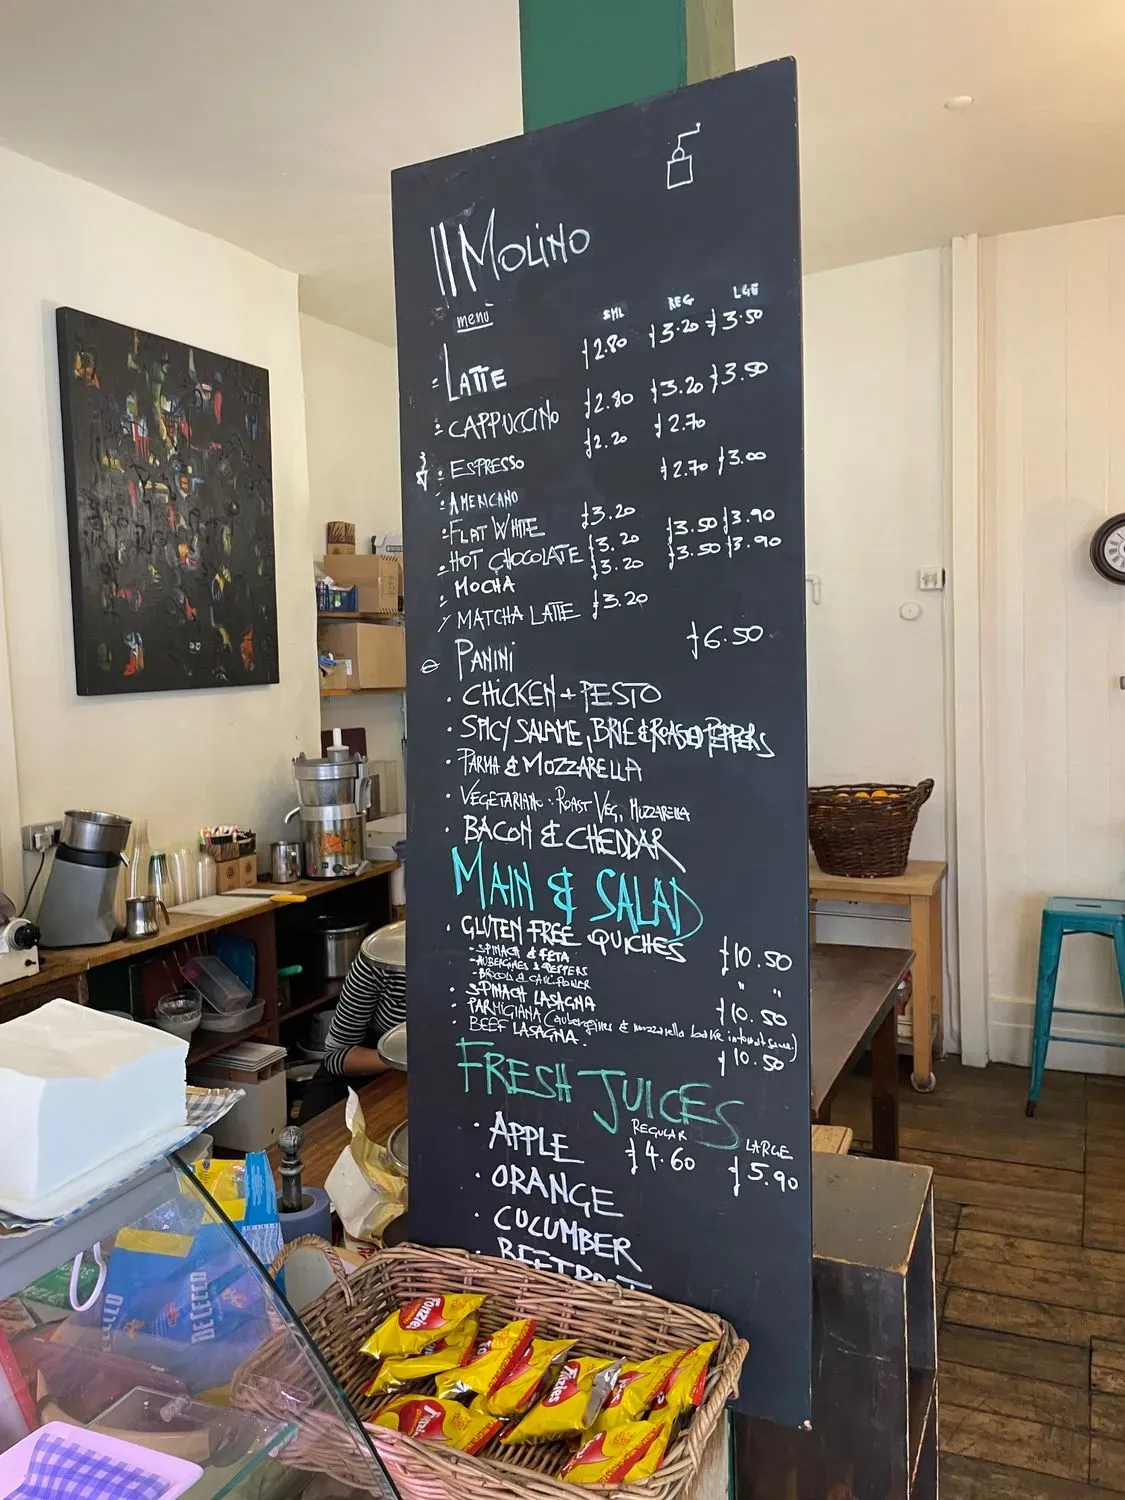 Il Molino
menù
SML REG LGE
LATTE £2.80 £3.20 £3.50
CAPPUCCINO £2.80 £3.20 £3.50
ESPRESSO £2.20 £2.70
AMERICANO £2.70 £3.00
FLAT WHITE £3.20
HOT CHOCOLATE £3.20 £3.50 £3.90
MOCHA £3.20 £3.50 £3.90
MATCHA LATTE £3.20
PANINI £6.50
· CHICKEN + PESTO
· SPICY SALAME, BRIE & ROASTED PEPPERS
· PARMA & MOZZARELLA
· VEGETARIANO: ROAST VEG, MOZZARELLA
· BACON & CHEDDAR
MAIN & SALAD
· GLUTEN FREE QUICHES £10.50
- SPINACH & FETA
- AUBERGINES & PEPPERS " "
- BROCOLI & CAULIFLOWER
· SPINACH LASAGNA £10.50
· PARMIGIANA (aubergines & mozzarella bake in tomat sauce)
· BEEF LASAGNA. £10.50
FRESH JUICES
REGULAR LARGE
· APPLE £4.60 £5.90
· ORANGE
· CUCUMBER
· BEETROOT
DE CECCO
Fonzies
Fonzies